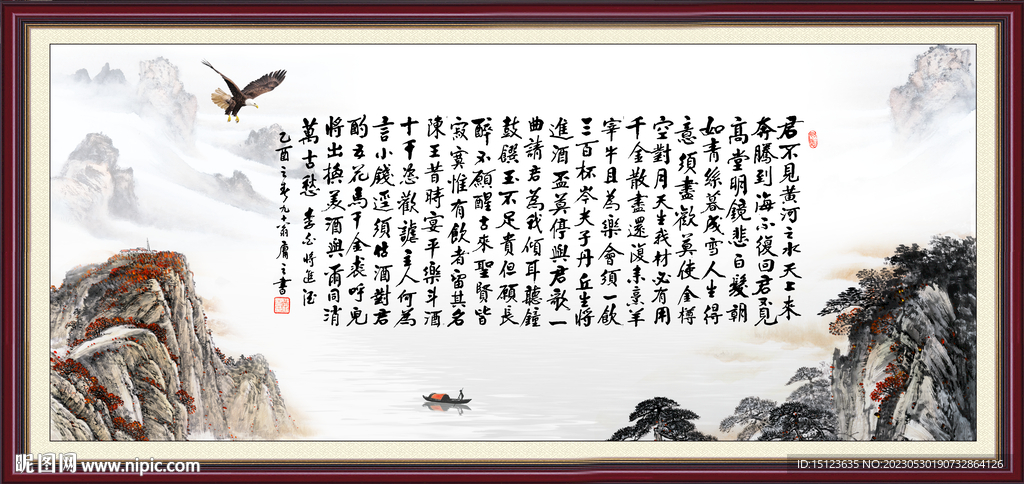 君不見黃河之水天上來
奔騰到海不復回君不見
高堂明鏡悲白髮朝
如青絲暮成雪人生得
意須盡歡莫使金樽
空對月天生我材必有用
千金散盡還復來烹羊
宰牛且為樂會須一飲
三百杯岑夫子丹丘生將
進酒盃莫停與君歌一
曲請君為我傾耳聽鐘
鼓饌玉不足貴但願長
醉不願醒古來聖賢皆
寂寞惟有飲者留其名
陳王昔時宴平樂斗酒
十千恣歡謔主人何為
言少錢逕須沽酒對君
酌五花馬千金裘呼兒
將出換美酒與爾同消
萬古愁 李白將進酒
乙酉之春九翁庸之書
昵图网 www.nipic.com
ID:15123635 NO:20230530190732864126